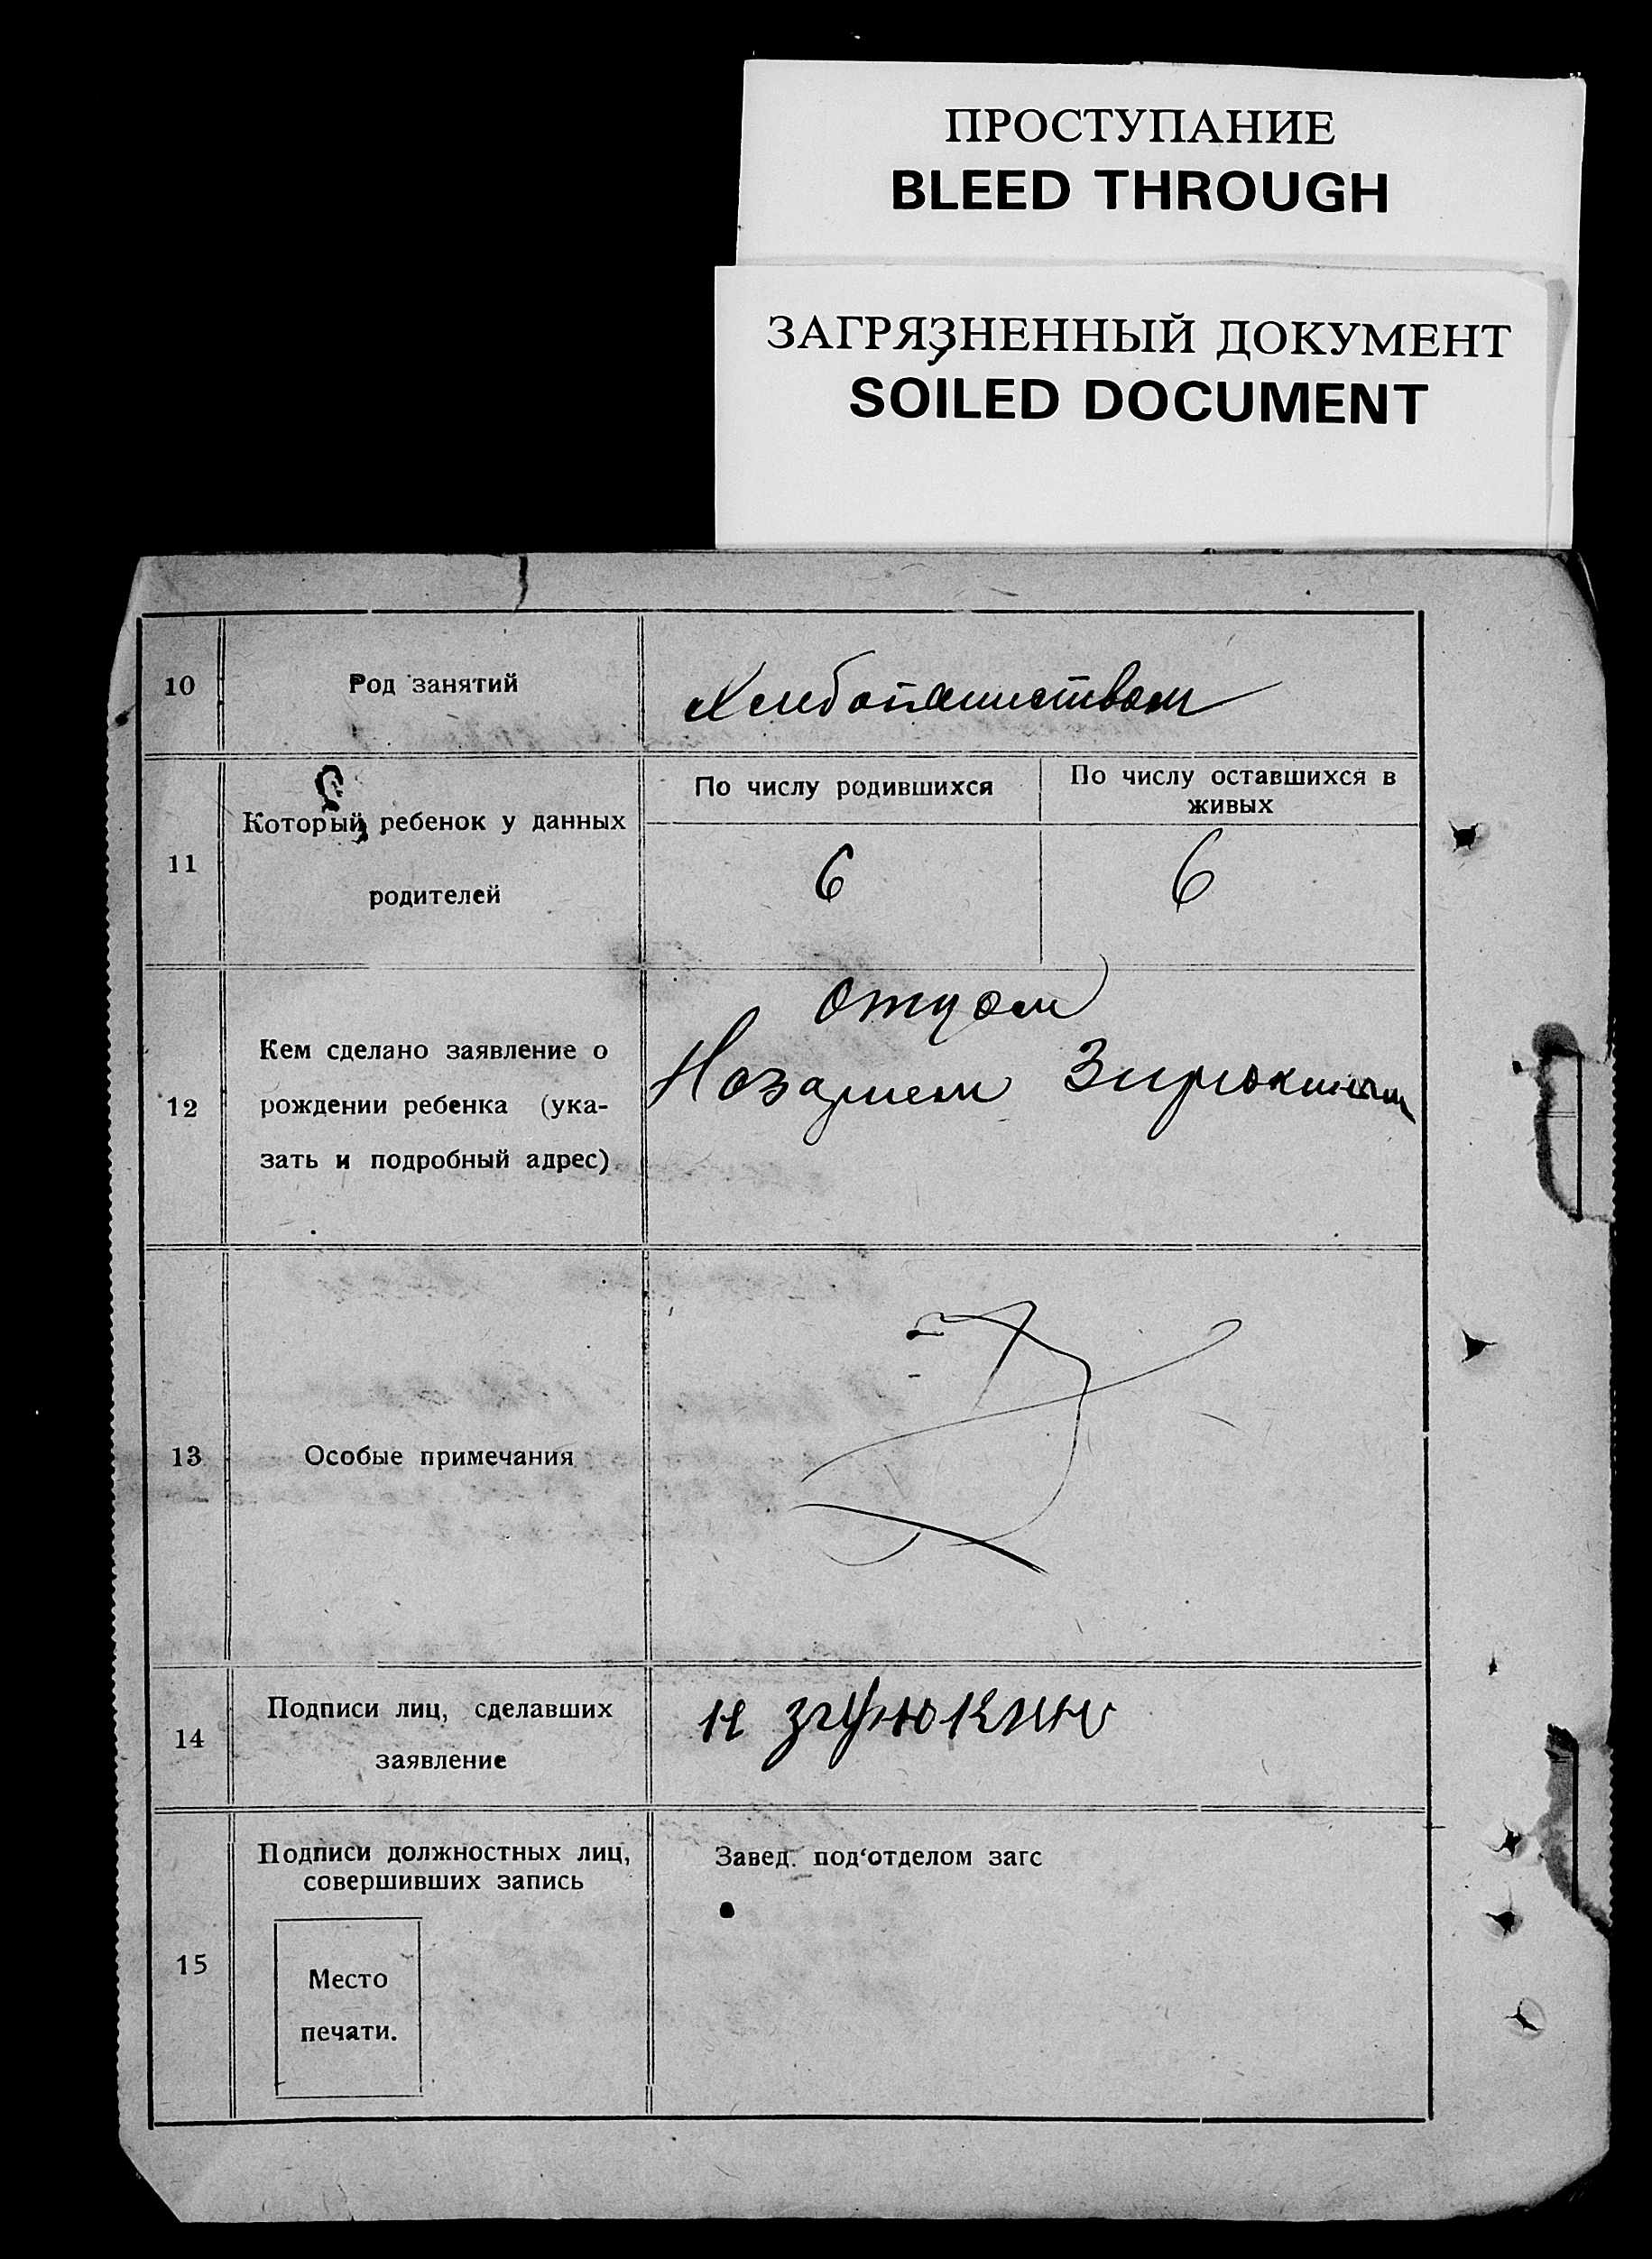 ПРОСТУПАНИЕ
BLEED THROUGH
ЗАГРЯЗНЕННЫЙ ДОКУМЕНТ
SOILED DOCUMENT
10 Род занятий Хлебопашеством
11 Который ребенок у данных родителей
По числу родившихся
По числу оставшихся в живых
6 6
12 Кем сделано заявление о
рождении ребенка (ука-
зать и подробный адрес)
отцом
Назарием Зирюкиным
13 Особые примечания
14 Подписи лиц, сделавших
заявление
Н Зирюкин
15 Подписи должностных лиц,
совершивших запись
Место
печати.
Завед. под‘отделом загс